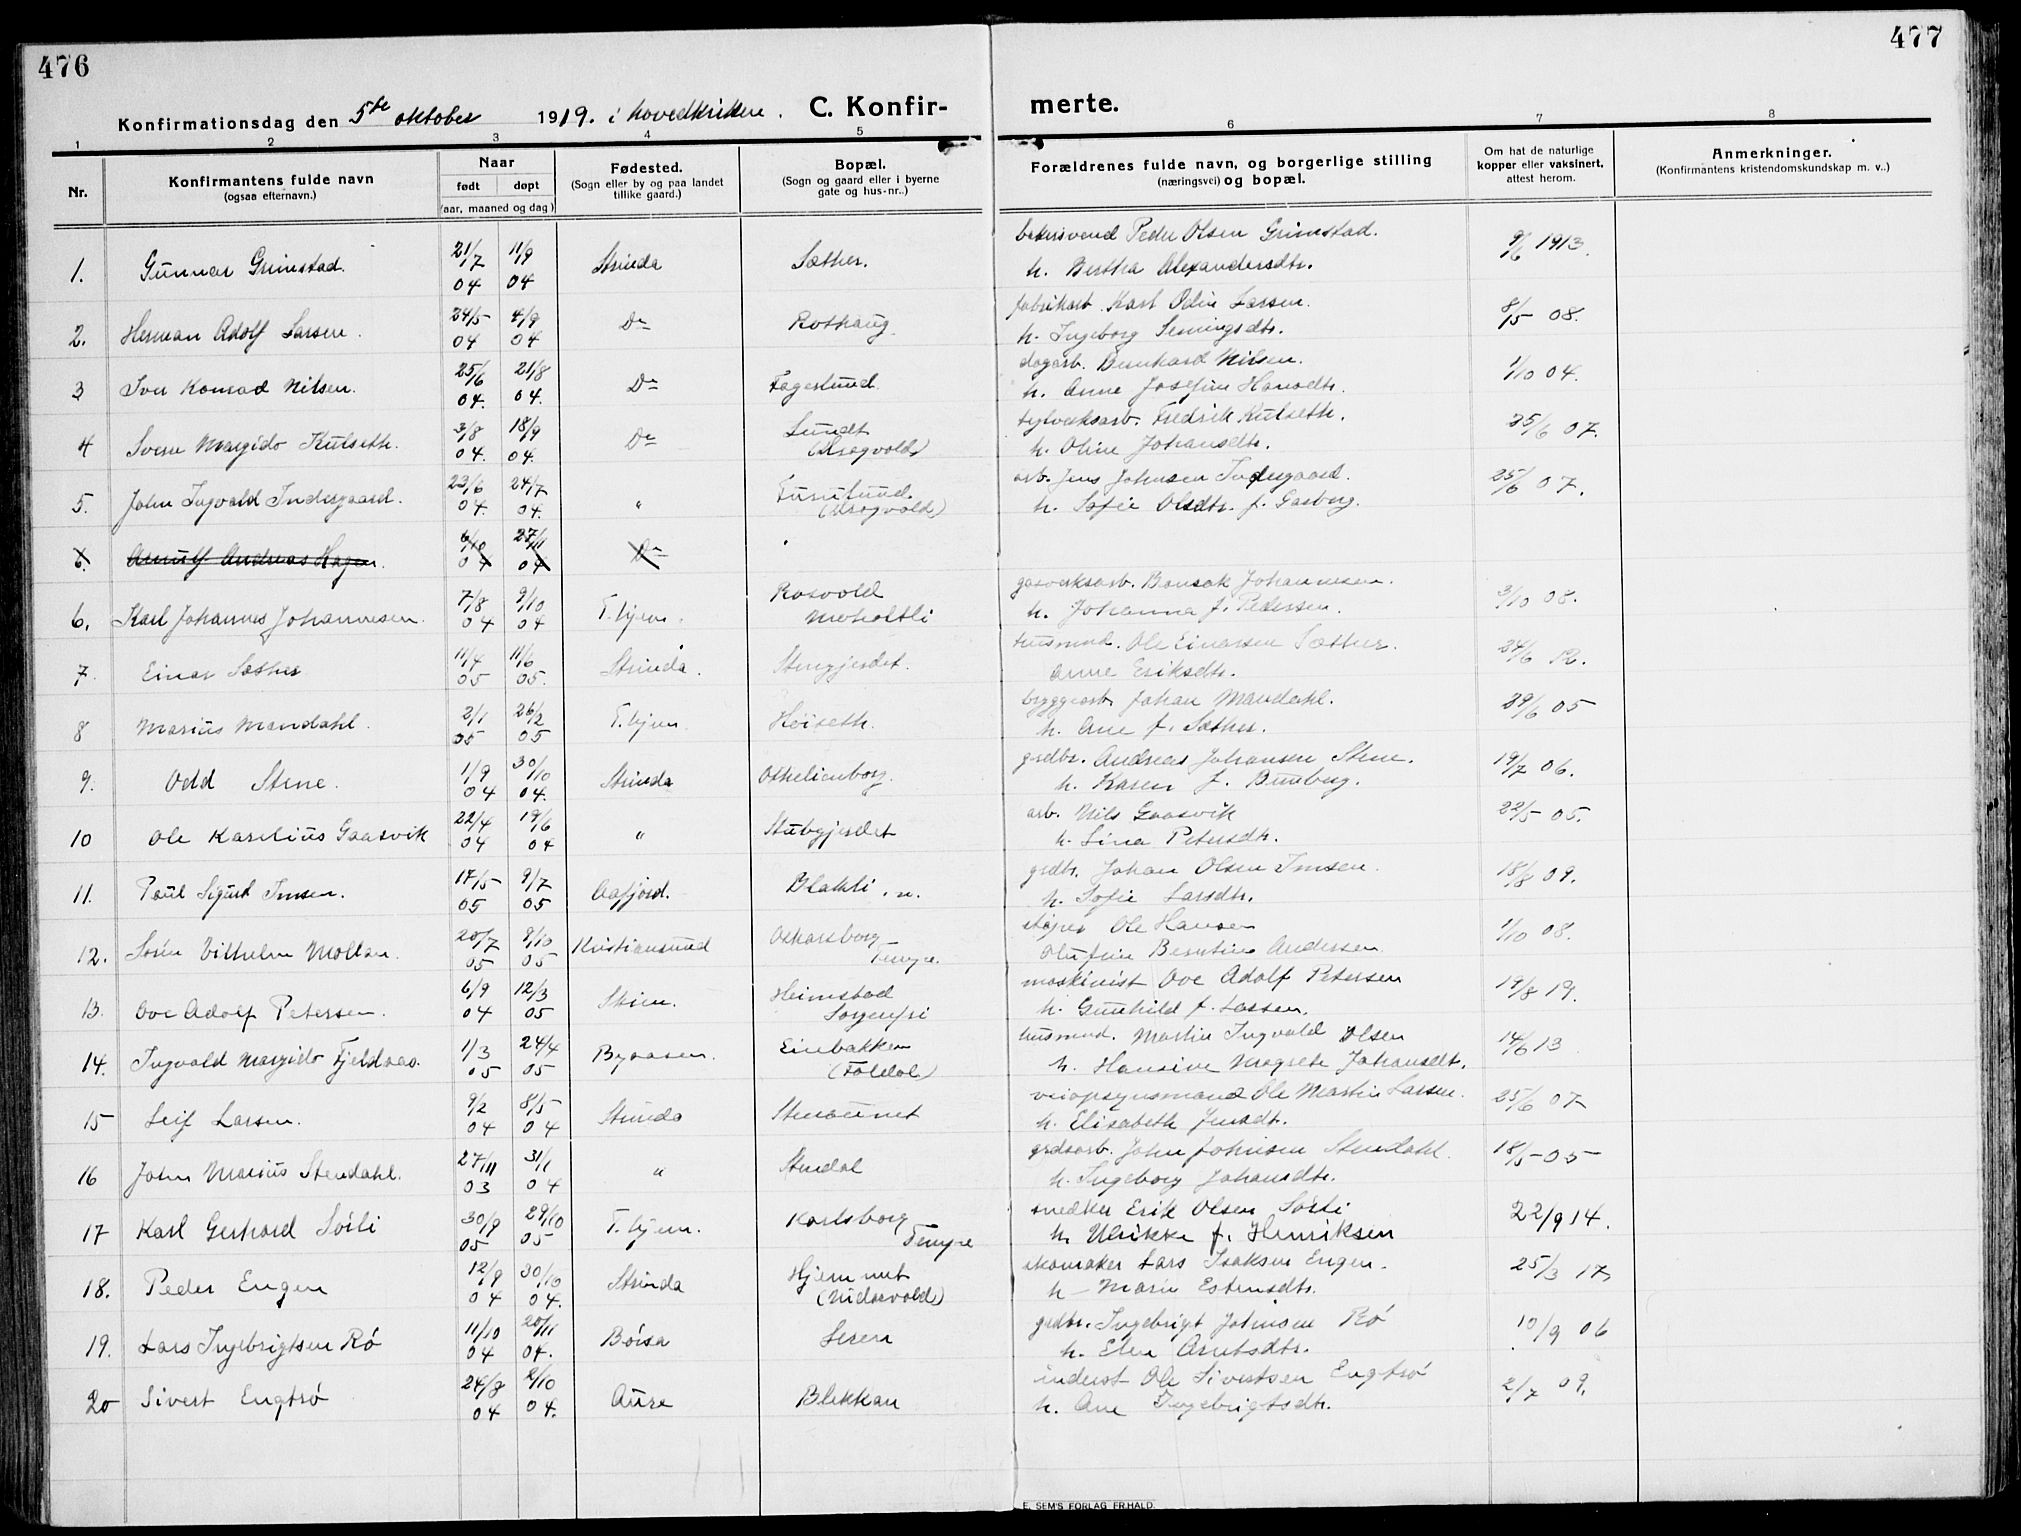 476
477
Konfirmationsdag den 5te oktober 1919. i hovedkirken. C. Konfirmerte.
1 2 3 4 5 6 7 8
Nr.
Konfirmantens fulde navn
(ogsaa efternavn.)
Naar
født døpt
(aar, maaned og dag)
Fødested.
(Sogn eller by og paa landet
tillike gaard.)
Bopæl.
(Sogn og gaard eller i byerne
gate og hus-nr..)
Forældrenes fulde navn, og borgerlige stilling
(næringsvei) og bopæl.
Om hat de naturlige
kopper eller vaksinert,
attest herom.
Anmerkninger.
(Konfirmantens kristendomskundskap m. v..)
1. Gunnar Grimstad. 21/7 04 11/9 04 Strinda Sæther. bakersvend Peder Olsen Grimstad. 9/6 1913.
h. Bertha Alexandersdtr.
2. Herman Adolf Larsen. 24/5 04 4/9 04 Do Rothaug fabrikarb. Karl Odin Larsen. 8/5 08.
h. Ingeborg Semingsdtr.
3 Iver Konrad Nilsen. 25/6 04. 21/8 04. Do Fagerlund. dagarb. Bernhard Nilsen. 1/10 04.
h. Anne Josefine Hansdtr.
4 Sverre Margido Kulseth. 3/8 04. 18/9 04. Do Lundt teglverksarb. Fredrik Kulseth. 25/6 07.
(Krogvold) h. Oline Johansdtr.
5. John Ingvald Indergaard. 23/6 04. 24/7 04. " Furulund. arb. Jens Johnsen Indergaard. 25/6 07.
(Krogvold) h. Sofie Olsdtr. f. Gasberg.
6. Arnulf Andreas Hagen. 6/10 04 27/11 04 Do
6. Karl Johannes Johannesen. 7/8 04 9/10 04 T.hjem. Rosvold gasverksarb. Johannesen. 3/10 08.
Moholtli h. Johanna f. Pedersen.
7. Einar Sæther 11/4 05 11/6 05. Strinda. Stengjerdet. husmnd. Ole Einarsen Sæther. 24/6 12.
Anne Eriksdtr.
8 Marius Mandahl. 2/1 05 26/2 05 T.hjem Høiseth. byggearb. Johan Mandahl. 29/6 05
h. Ane f. Sæther.
9. Odd Stene. 1/9 04 30/10 04. Strinda Othelienborg. grdbr. Andreas Johansen Stene. 19/7 06.
h. Karen f. Bunberg.
10 Ole Karelius Gaasvik 22/4 04 19/6 04 " Stubgjerdet arb. Nils Gaasvik 22/5 05.
h. Lina Petersdtr.
11. Paul Sigurd Imsen. 17/5 05 9/7 05 Aafjord. Blakli . n. grdbr. Johan Olsen Imsen. 18/8 09.
h. Sofie Larsdtr.
12. Søren Vilhelm Mollan. 20/7 05 9/10 05 Kristiansund Oskarsborg Ole Hansen 1/10 08.
Tempe. Olufine Berntine Andersen.
13. Ove Adolf Petersen. 6/9 04 12/3 05 Skien. Heimstad maskinist Ove Adolf Petersen 19/8 19.
Sorgenfri h. Gunhild f. Larsen.
14. Ingvald Margido Fjeldaas. 1/3 05 24/4 05 Byaasen. Einbakken husmnd. Martin Ingvald Olsen 14/6 13
(Foldal) h. Hansine Magrete Johansdtr.
15 Leif Larsen. 9/2 04 8/5 04 Strinda Stenaunet veiopsynsmand Ole Martin Larsen. 25/6 07
h. Elisabeth Jensdtr.
16 John Marius Stendahl. 27/11 03 31/1 04 " Stendal grdsarb. John Johnsen Stendahl. 18/5 05
h. Ingeborg Johansdtr.
17 Karl Gerhard Sørli 30/9 05 29/10 05 T.hjem. Karlsborg snedker Erik Olsen Sørli 22/9 14.
Tempe h. Ulrikke f. Henriksen
18. Peder Engen 12/9 04 30/10 04. Strinda Hjemmet skomaker Lars Isaksen Engen. 25/3 17
(Nidarvold) h. Marie Estensdtr.
19. Lars Ingebrigtsen Rø 11/10 04 20/11 04. Børsa Leren grdbr. Ingebrigt Johnsen Rø 10/9 06
h. Elen Arntsdtr.
20 Sivert Engtrø 24/8 04 2/10 04. Aure Blekkan inderst Ole Sivertsen Engtrø 2/7 09.
h. Ane Ingebrigtsdtr.
E. SEM'S FORLAG FR.HALD.